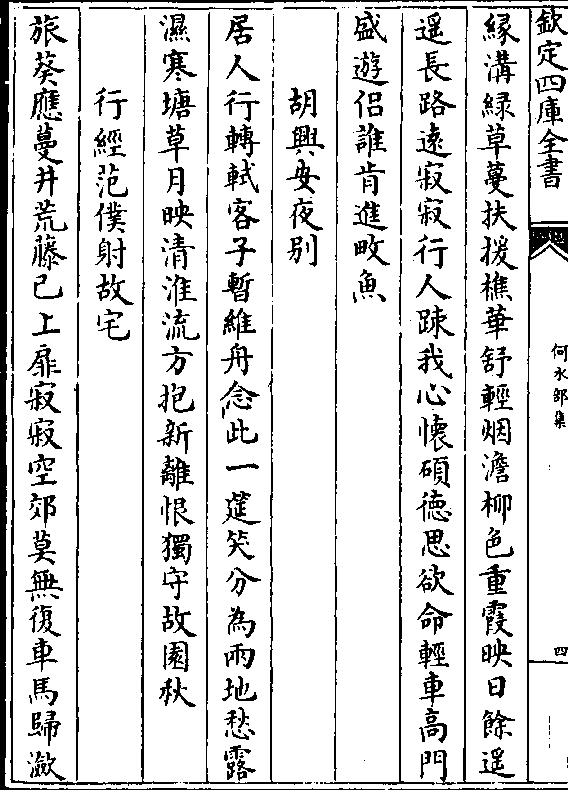 欽定四庫全書
何水部集
四
緣溝綠草蔓扶援樵華舒輕烟澹柳色重霞映日餘遥
遥長路遠寂寂行人踈我心懷碩德思欲命輕車高門
盛遊侣誰肯進畋魚
胡興安夜别
居人行轉軾客子暫維舟念此一筵笑分為兩地愁露
濕寒塘草月映清淮流方抱新離恨獨守故園秋
行經范僕射故宅
旅葵應蔓井荒藤已上扉寂寂空郊莫無復車馬歸瀲